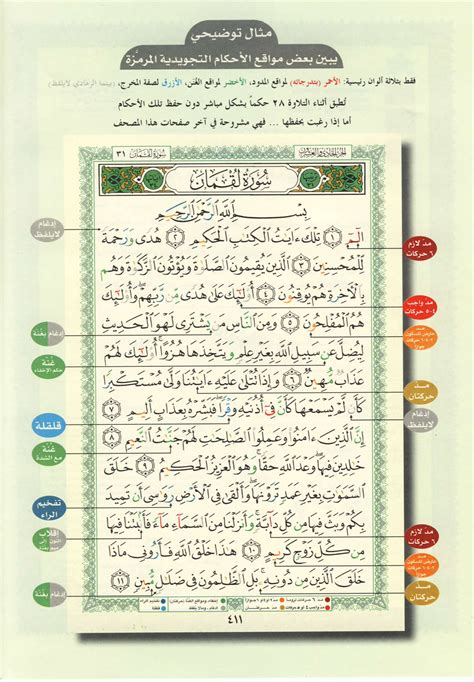 مثال توضيحي
يبين بعض مواقع الأحكام التجويدية المرمَّزة
فقط بثلاثة ألوان رئيسية: الأحمر (بتدرجاته) لمواقع المدود، الأخضر لمواقع الغنن، الأزرق لصفة المخرج، (بينما الرمادي لايلفظ)
تُطبق أثناء التلاوة ٢٨ حكماً بشكل مباشر دون حفظ تلك الأحكام
أما إذا رغبت بحفظها ... فهي مشروحة في آخر صفحات هذا المصحف
سورة لقمان ٣١
الجزء الحادي والعشرون
سُورَةُ لُقْمَان
بِسْمِ اللَّهِ الرَّحْمَٰنِ الرَّحِيمِ
الٓمٓ ١ تِلْكَ ءَايَٰتُ الْكِتَٰبِ الْحَكِيمِ ٢ هُدًى وَرَحْمَةً
لِّلْمُحْسِنِينَ ٣ الَّذِينَ يُقِيمُونَ الصَّلَوٰةَ وَيُؤْتُونَ الزَّكَوٰةَ وَهُم
بِالْءَاخِرَةِ هُمْ يُوقِنُونَ ٤ أُوْلَٰٓئِكَ عَلَىٰ هُدًى مِّن رَّبِّهِمْ وَأُوْلَٰٓئِكَ
هُمُ الْمُفْلِحُونَ ٥ وَمِنَ النَّاسِ مَن يَشْتَرِى لَهْوَ الْحَدِيثِ
لِيُضِلَّ عَن سَبِيلِ اللَّهِ بِغَيْرِ عِلْمٍ وَيَتَّخِذَهَا هُزُوًا أُوْلَٰٓئِكَ لَهُمْ
عَذَابٌ مُّهِينٌ ٦ وَإِذَا تُتْلَىٰ عَلَيْهِ ءَايَٰتُنَا وَلَّىٰ مُسْتَكْبِرًا
كَأَن لَّمْ يَسْمَعْهَا كَأَنَّ فِىٓ أُذُنَيْهِ وَقْرًا فَبَشِّرْهُ بِعَذَابٍ أَلِيمٍ ٧
إِنَّ الَّذِينَ ءَامَنُوا وَعَمِلُوا الصَّٰلِحَٰتِ لَهُمْ جَنَّٰتُ النَّعِيمِ ٨
خَٰلِدِينَ فِيهَا وَعْدَ اللَّهِ حَقًّا وَهُوَ الْعَزِيزُ الْحَكِيمُ ٩ خَلَقَ
السَّمَٰوَٰتِ بِغَيْرِ عَمَدٍ تَرَوْنَهَا وَأَلْقَىٰ فِى الْأَرْضِ رَوَٰسِىَ أَن تَمِيدَ
بِكُمْ وَبَثَّ فِيهَا مِن كُلِّ دَآبَّةٍ وَأَنزَلْنَا مِنَ السَّمَآءِ مَآءً فَأَنۢبَتْنَا فِيهَا
مِن كُلِّ زَوْجٍ كَرِيمٍ ١٠ هَٰذَا خَلْقُ اللَّهِ فَأَرُونِى مَاذَا
خَلَقَ الَّذِينَ مِن دُونِهِۦ بَلِ الظَّٰلِمُونَ فِى ضَلَٰلٍ مُّبِينٍ ١١
٤١١
مدّ لازم
٦ حركات
مد واجب
٤-٥ حركات
مد
حركتان
إدغام
لايلفظ
مدّ لازم
٦ حركات
مد
حركتان
إدغام
لايلفظ
إدغام بغنّة
غنّة
حكم الإخفاء
قلقلة
غنّة
مع الشدة
تفخيم
الراء
إقلاب
إدغام بغنّة